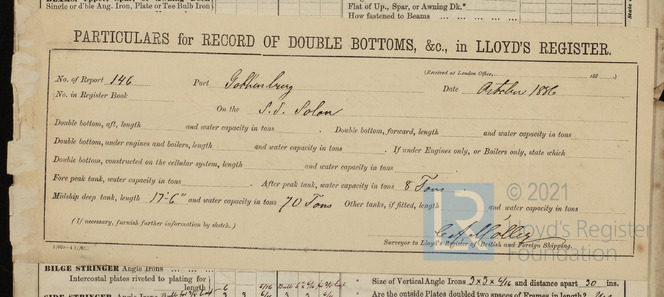 Single or d'ble Ang. Iron, Plate or Tee Bulb Iron
Flat of Up., Spar, or Awning Dk.*
How fastened to Beams
PARTICULARS for RECORD OF DOUBLE BOTTOMS, &c., in LLOYD'S REGISTER.
(Received at London Office, 188 )
No. of Report 146 Port Gothenburg Date October 1886
No. in Register Book
On the S.S. Solon
Double bottom, aft, length and water capacity in tons . Double bottom, forward, length and water capacity in tons
Double bottom, under engines and boilers, length and water capacity in tons . If under Engines only, or Boilers only, state which
Double bottom, constructed on the cellular system, length and water capacity in tons
Fore peak tank, water capacity in tons . After peak tank, water capacity in tons 8 Tons
Midship deep tank, length 17'-6" and water capacity in tons 70 Tons Other tanks, if fitted, length and water capacity in tons
(If necessary, furnish further information by sketch.)
Surveyor to Lloyd's Register of British and Foreign Shipping.
© 2021
Lloyd's Register
Foundation
BILGE STRINGER Angle Irons
Intercostal plates riveted to plating for length
Size of Vertical Angle Irons 3x3x6/16 and distance apart 30 ins.
Are the outside Plates doubled two spaces of Frames in length?